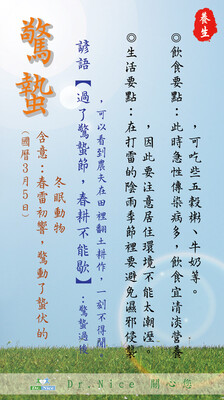 養生
◎飲食要點：此時急性傳染病多，飲食宜清淡營養
，可吃些五穀粥、牛奶等。
◎生活要點：在打雷的陰雨季節裡要避免濕邪侵襲
，因此要注意居住環境不能太潮溼。
諺語【過了驚蟄節，春耕不能歇】：驚蟄過後
，可以看到農夫在田裡翻土耕作，一刻不得閒
驚蟄
冬眠動物
含意：春雷初響，驚動了蟄伏的
(國曆3月5日)
Dr.Nice 關心您